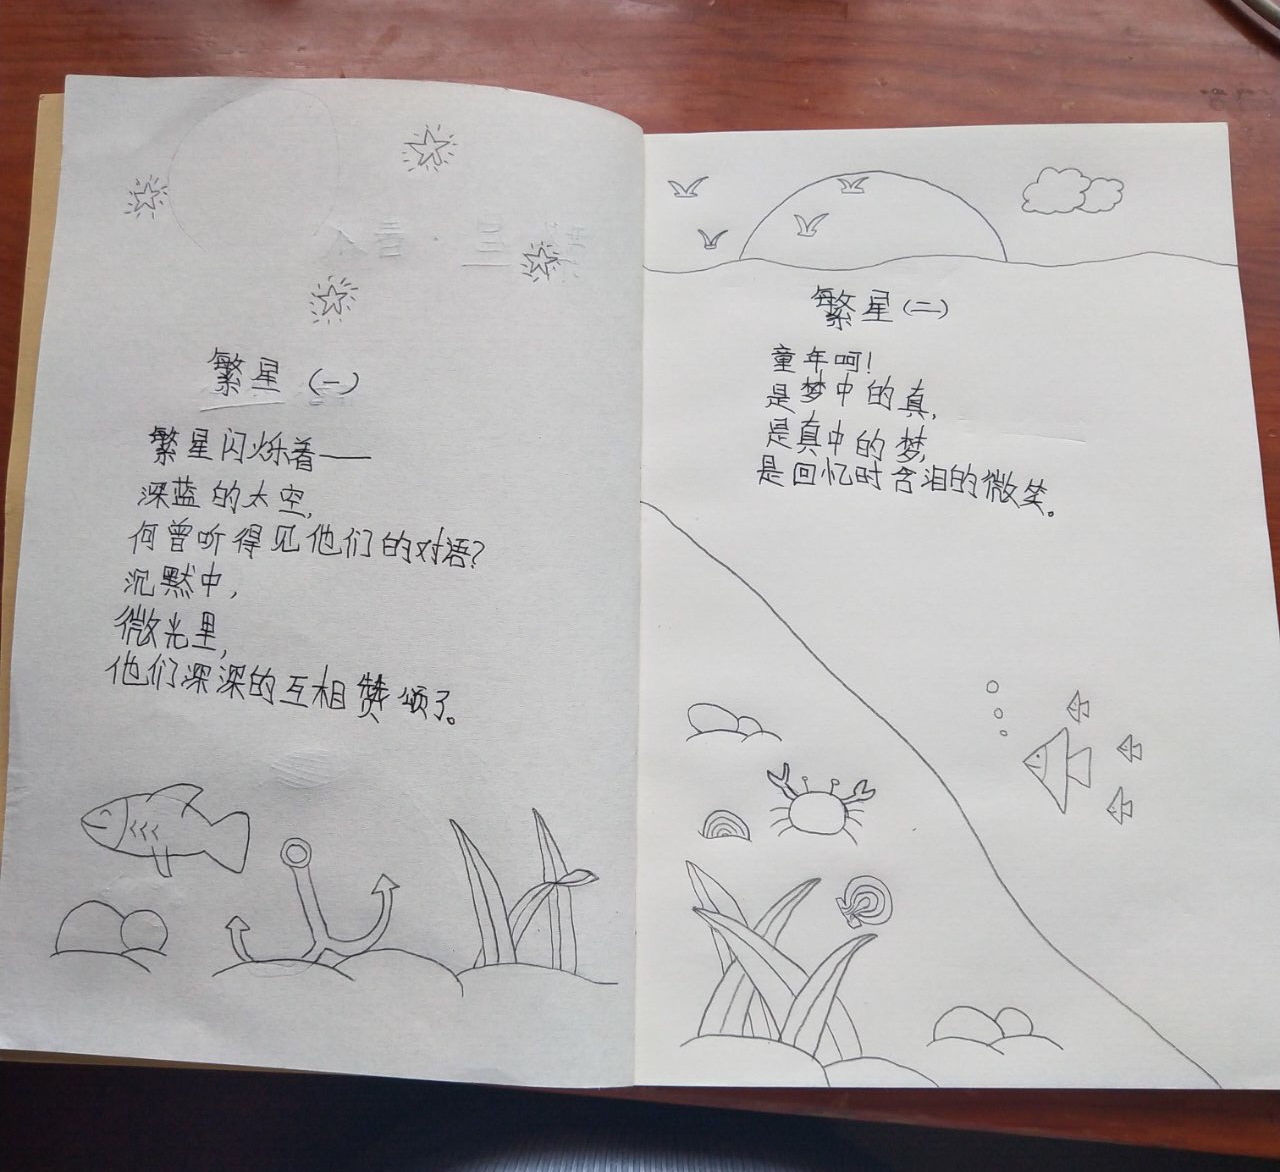 繁星（一）
繁星闪烁着——
深蓝的太空，
何曾听得见他们的对语？
沉默中，
微光里，
他们深深的互相赞颂了。
繁星（二）
童年呵！
是梦中的真，
是真中的梦，
是回忆时含泪的微笑。